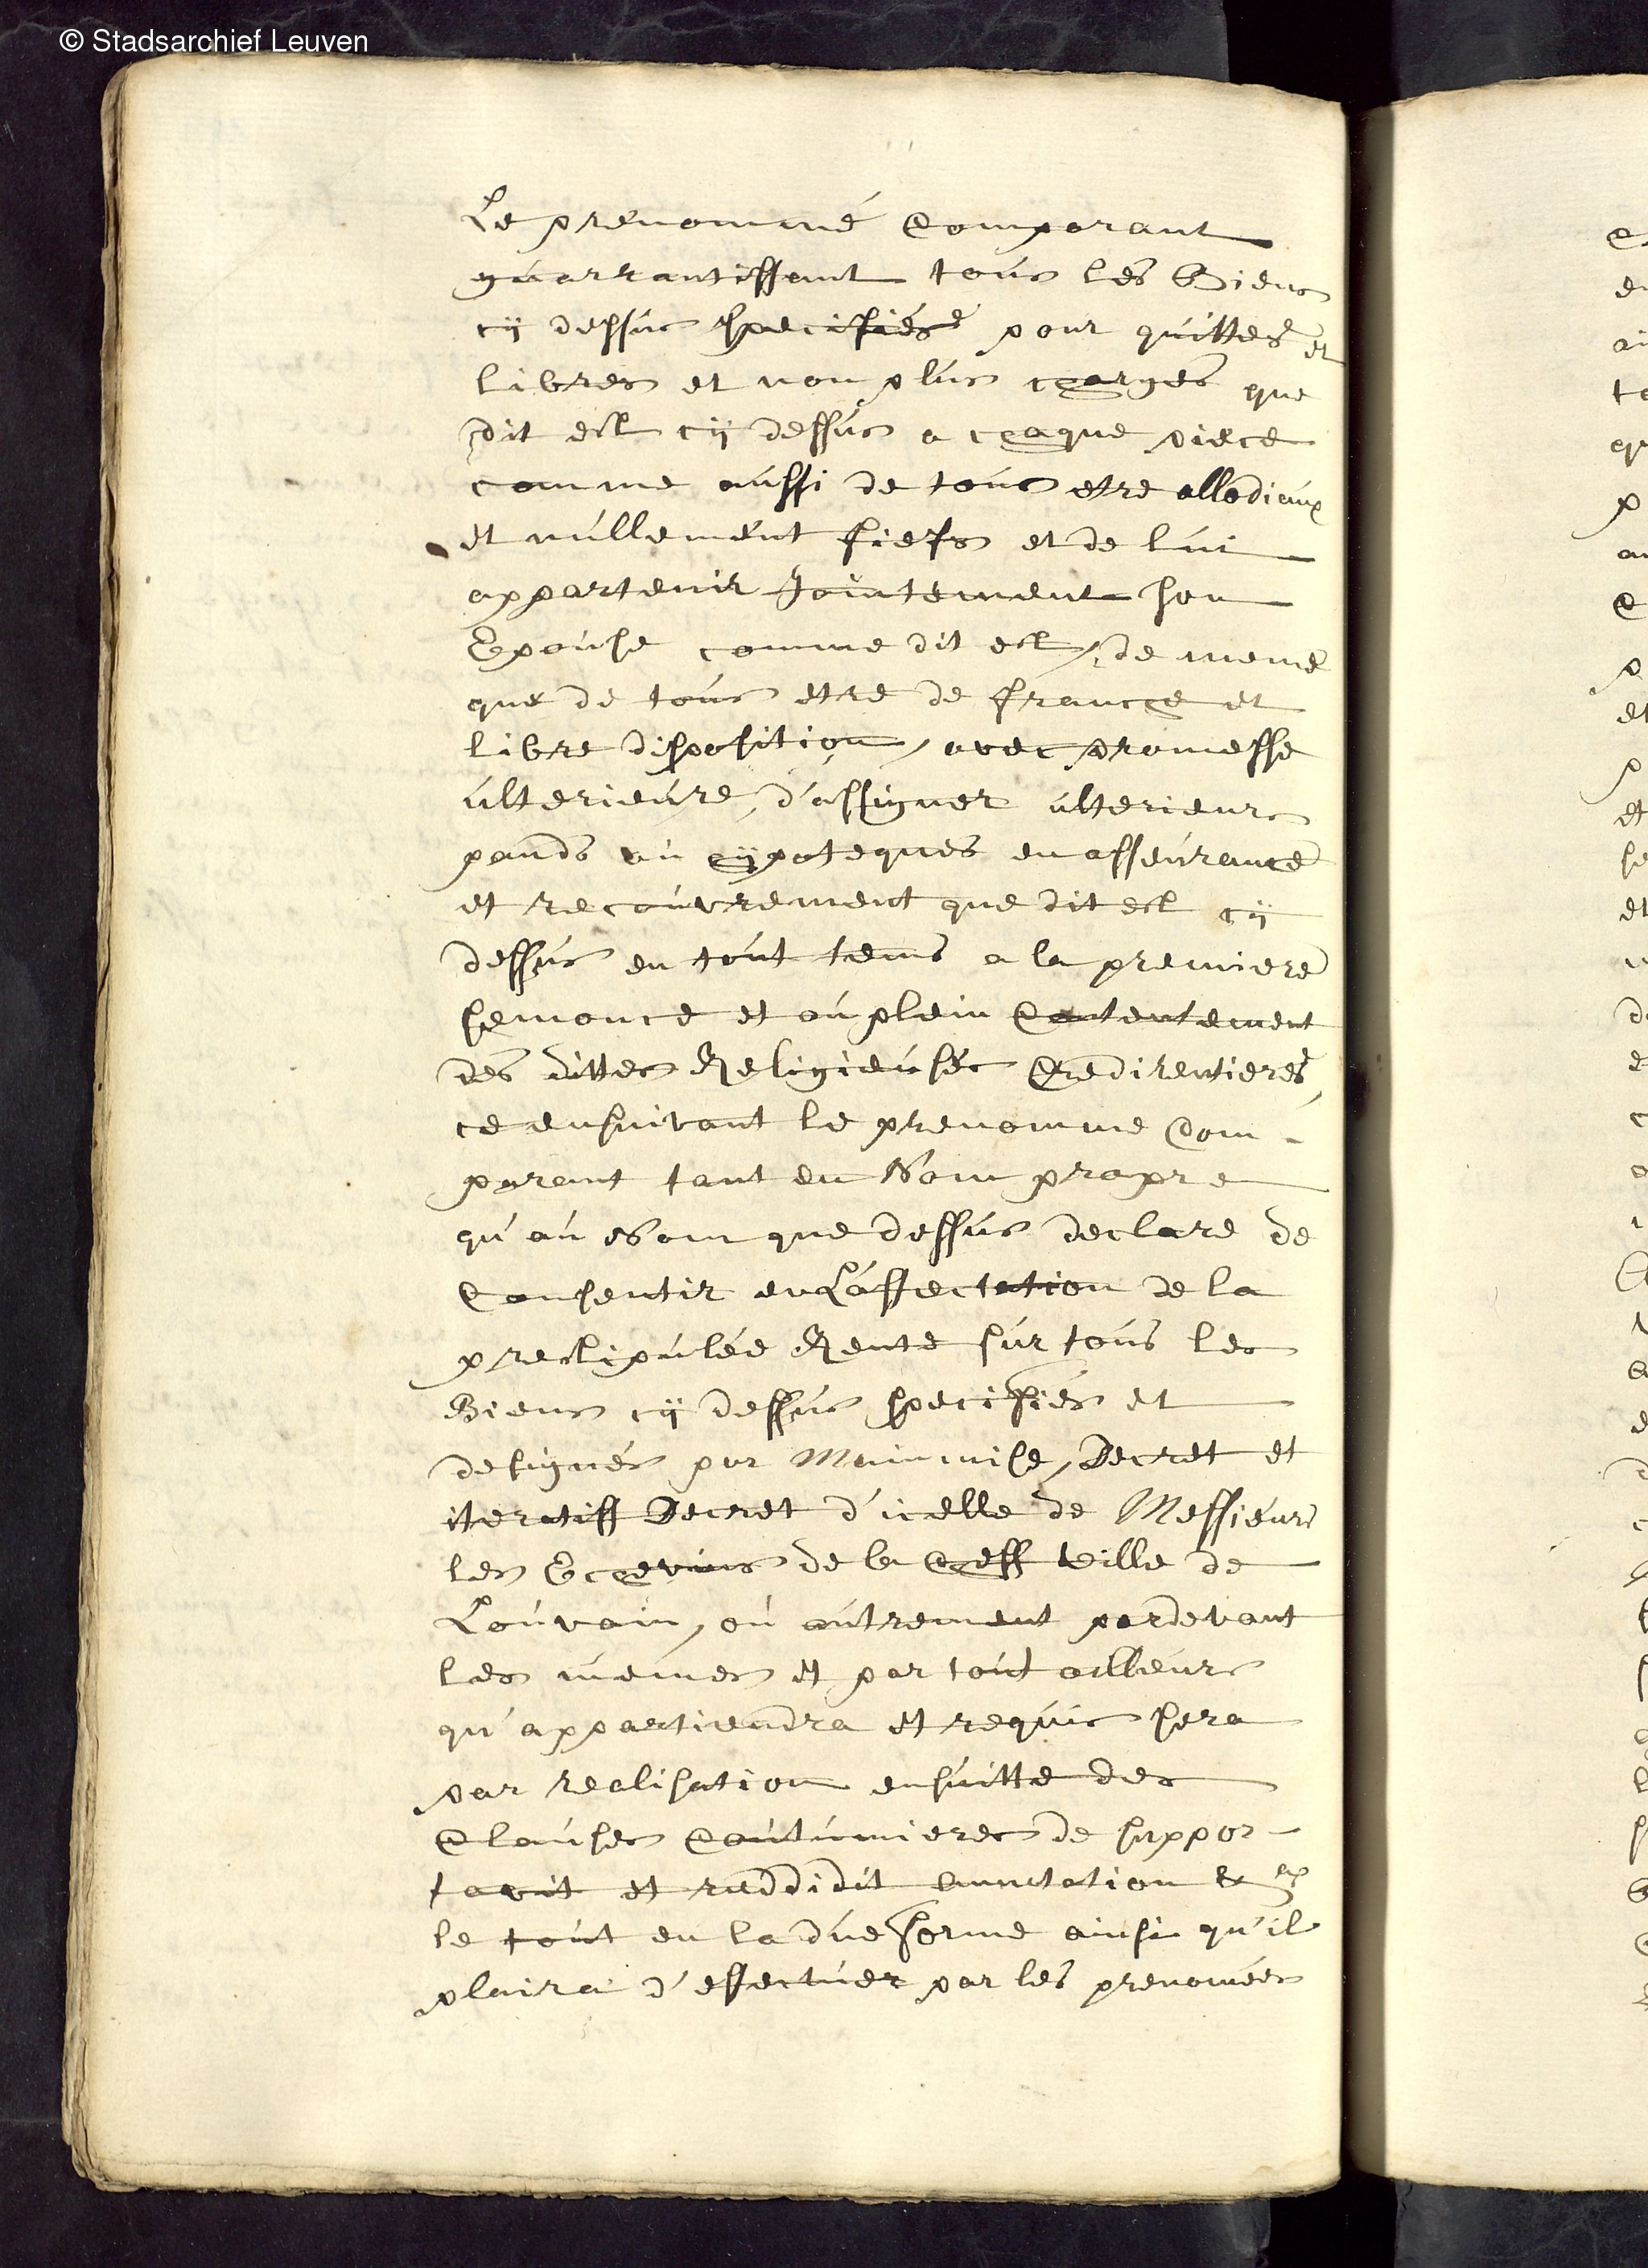 © Stadsarchief Leuven
Le prenommé Comparant
guarrantissant tous les Biens
cÿ dessus specifiés pour quittes et
libres et non plus charges que
dit est cÿ dessus a chaque piece
comme aussi de tous etre allodiaux
et nullement fiefs et de lui
appartenir Jointement son
Epouse comme dit est, de meme
que de tous etre de france et
libre disposition, avec promesse
ulterieure, d'assigner ulterieurs
pands ou hÿpoteques en asseurance
et recouvrement que dit est cÿ
dessus en tout tems a la premiere
semonce et au plein Contentement
des dittes Religieuses Credirentieres,
ce ensuivant le prenomme Com-
parant tant en Nom propre
qu'au Nom que dessus declare de
Consentir en L'affectation de la
prestipulée Rente sur tous les
Biens cÿ dessus specifiés et
designés par Mainmise, Decret et
iteratiff Decret d'icelle de Messieurs
les Echevins de la Cheff ville de
Louvain, ou autrement pardevant
les memes et par tout ailleurs
qu'appartiendra et requis sera
par realisation ensuitte des
Clauses Coutumieres de suppor-
tavit et reddidit annotation &
le tout en la due forme ainsi qu'il
plaira d'effectuer par les prenomées